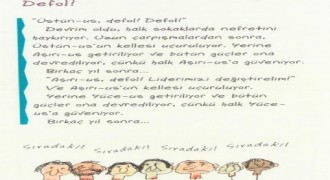 Defol!
"Üstün-us, defol! Defol!"
Devrim oldu, halk sokaklarda nefretini
haykırıyor. Uzun çarpışmalardan sonra,
Üstün-us'un kellesi uçuruluyor. Yerine
Aşırı-us getiriliyor ve bütün güçler ona
devrediliyor, çünkü halk Aşırı-us'a güveniyor.
Birkaç yıl sonra...
"Aşırı-us, defol! Liderimizi değiştirelim!"
Ve Aşırı-us'un kellesi uçuruluyor.
Yerine Yüce-us getiriliyor ve bütün
güçler ona devrediliyor, çünkü halk Yüce-
us'a güveniyor.
Birkaç yıl sonra...
Sıradaki! Sıradaki! Sıradaki! Sıradaki!